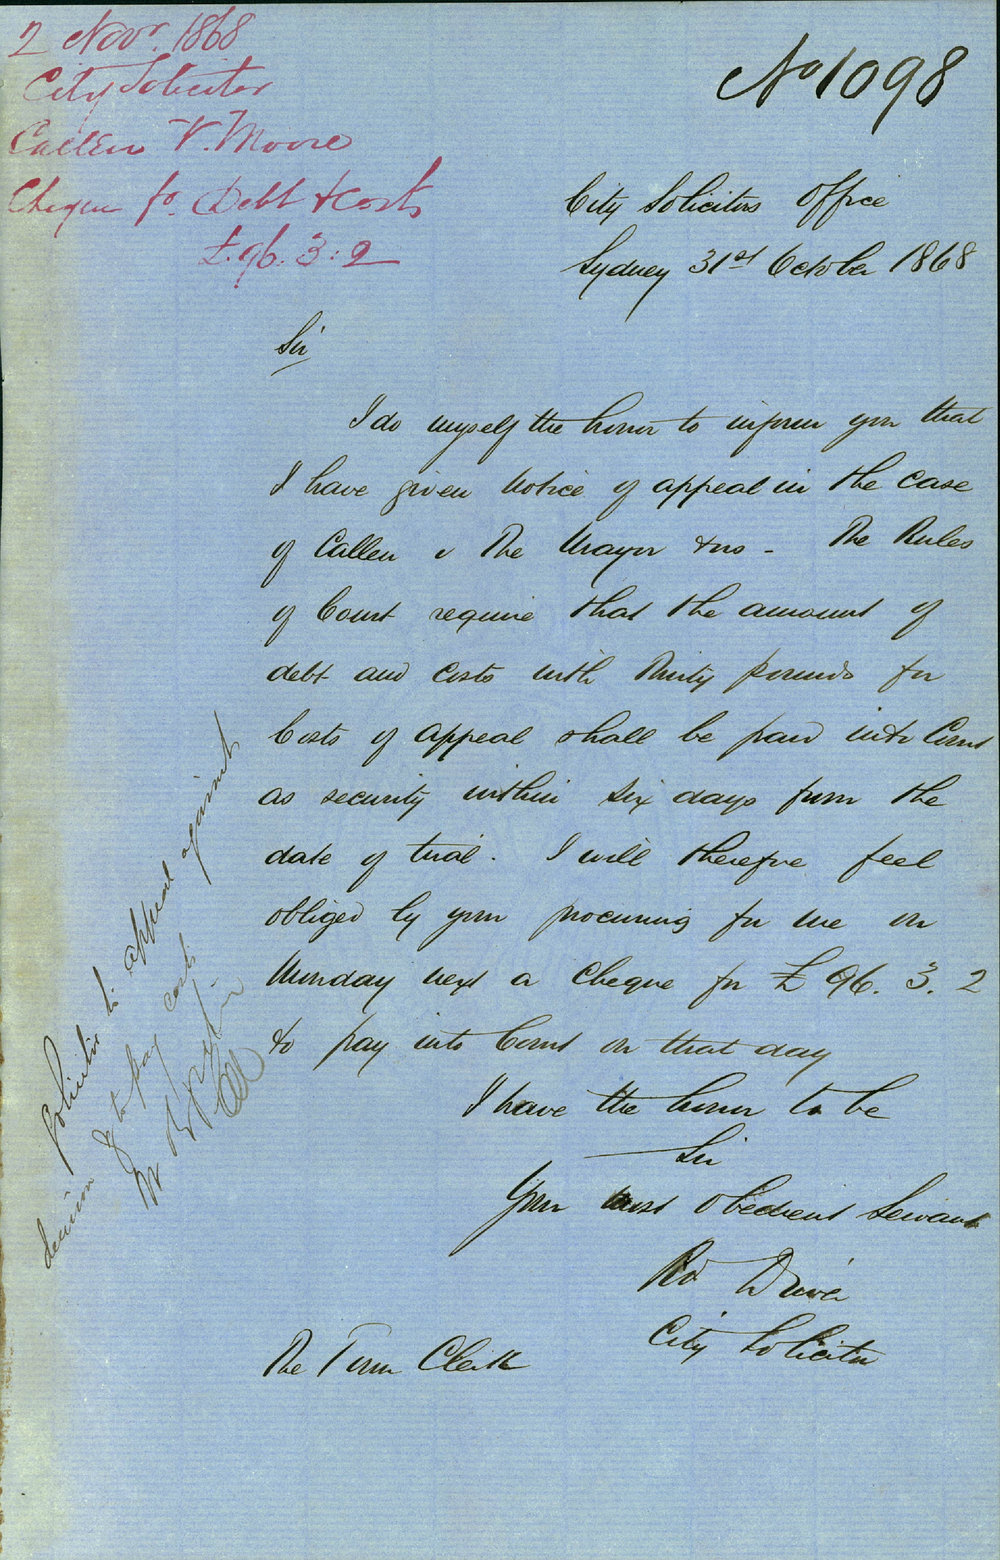 2 Novr. 1868
City Solicitor
Callen V. Moore
Cheque for Debt & Costs
£.96.3:2
No 1098
City Solicitors Office
Sydney 31st October 1868
Sir
I do myself the honor to inform you that
I have given Notice of appeal in the case
of Callen v The Mayor &ors - The Rules
of Court require that the amount of
debt and costs with Thirty pounds for
Costs of Appeal shall be paid into Court
as security within six days from the
date of trial. I will therefore feel
obliged by your procuring for me on
Monday next a Cheque for £ 96. 3. 2
to pay into Court on that day
I have the honor to be
Sir
Your most obedient Servant
Rd Driver
City Solicitor
The Town Clerk
Solicitor to appeal against
decision & to pay costs